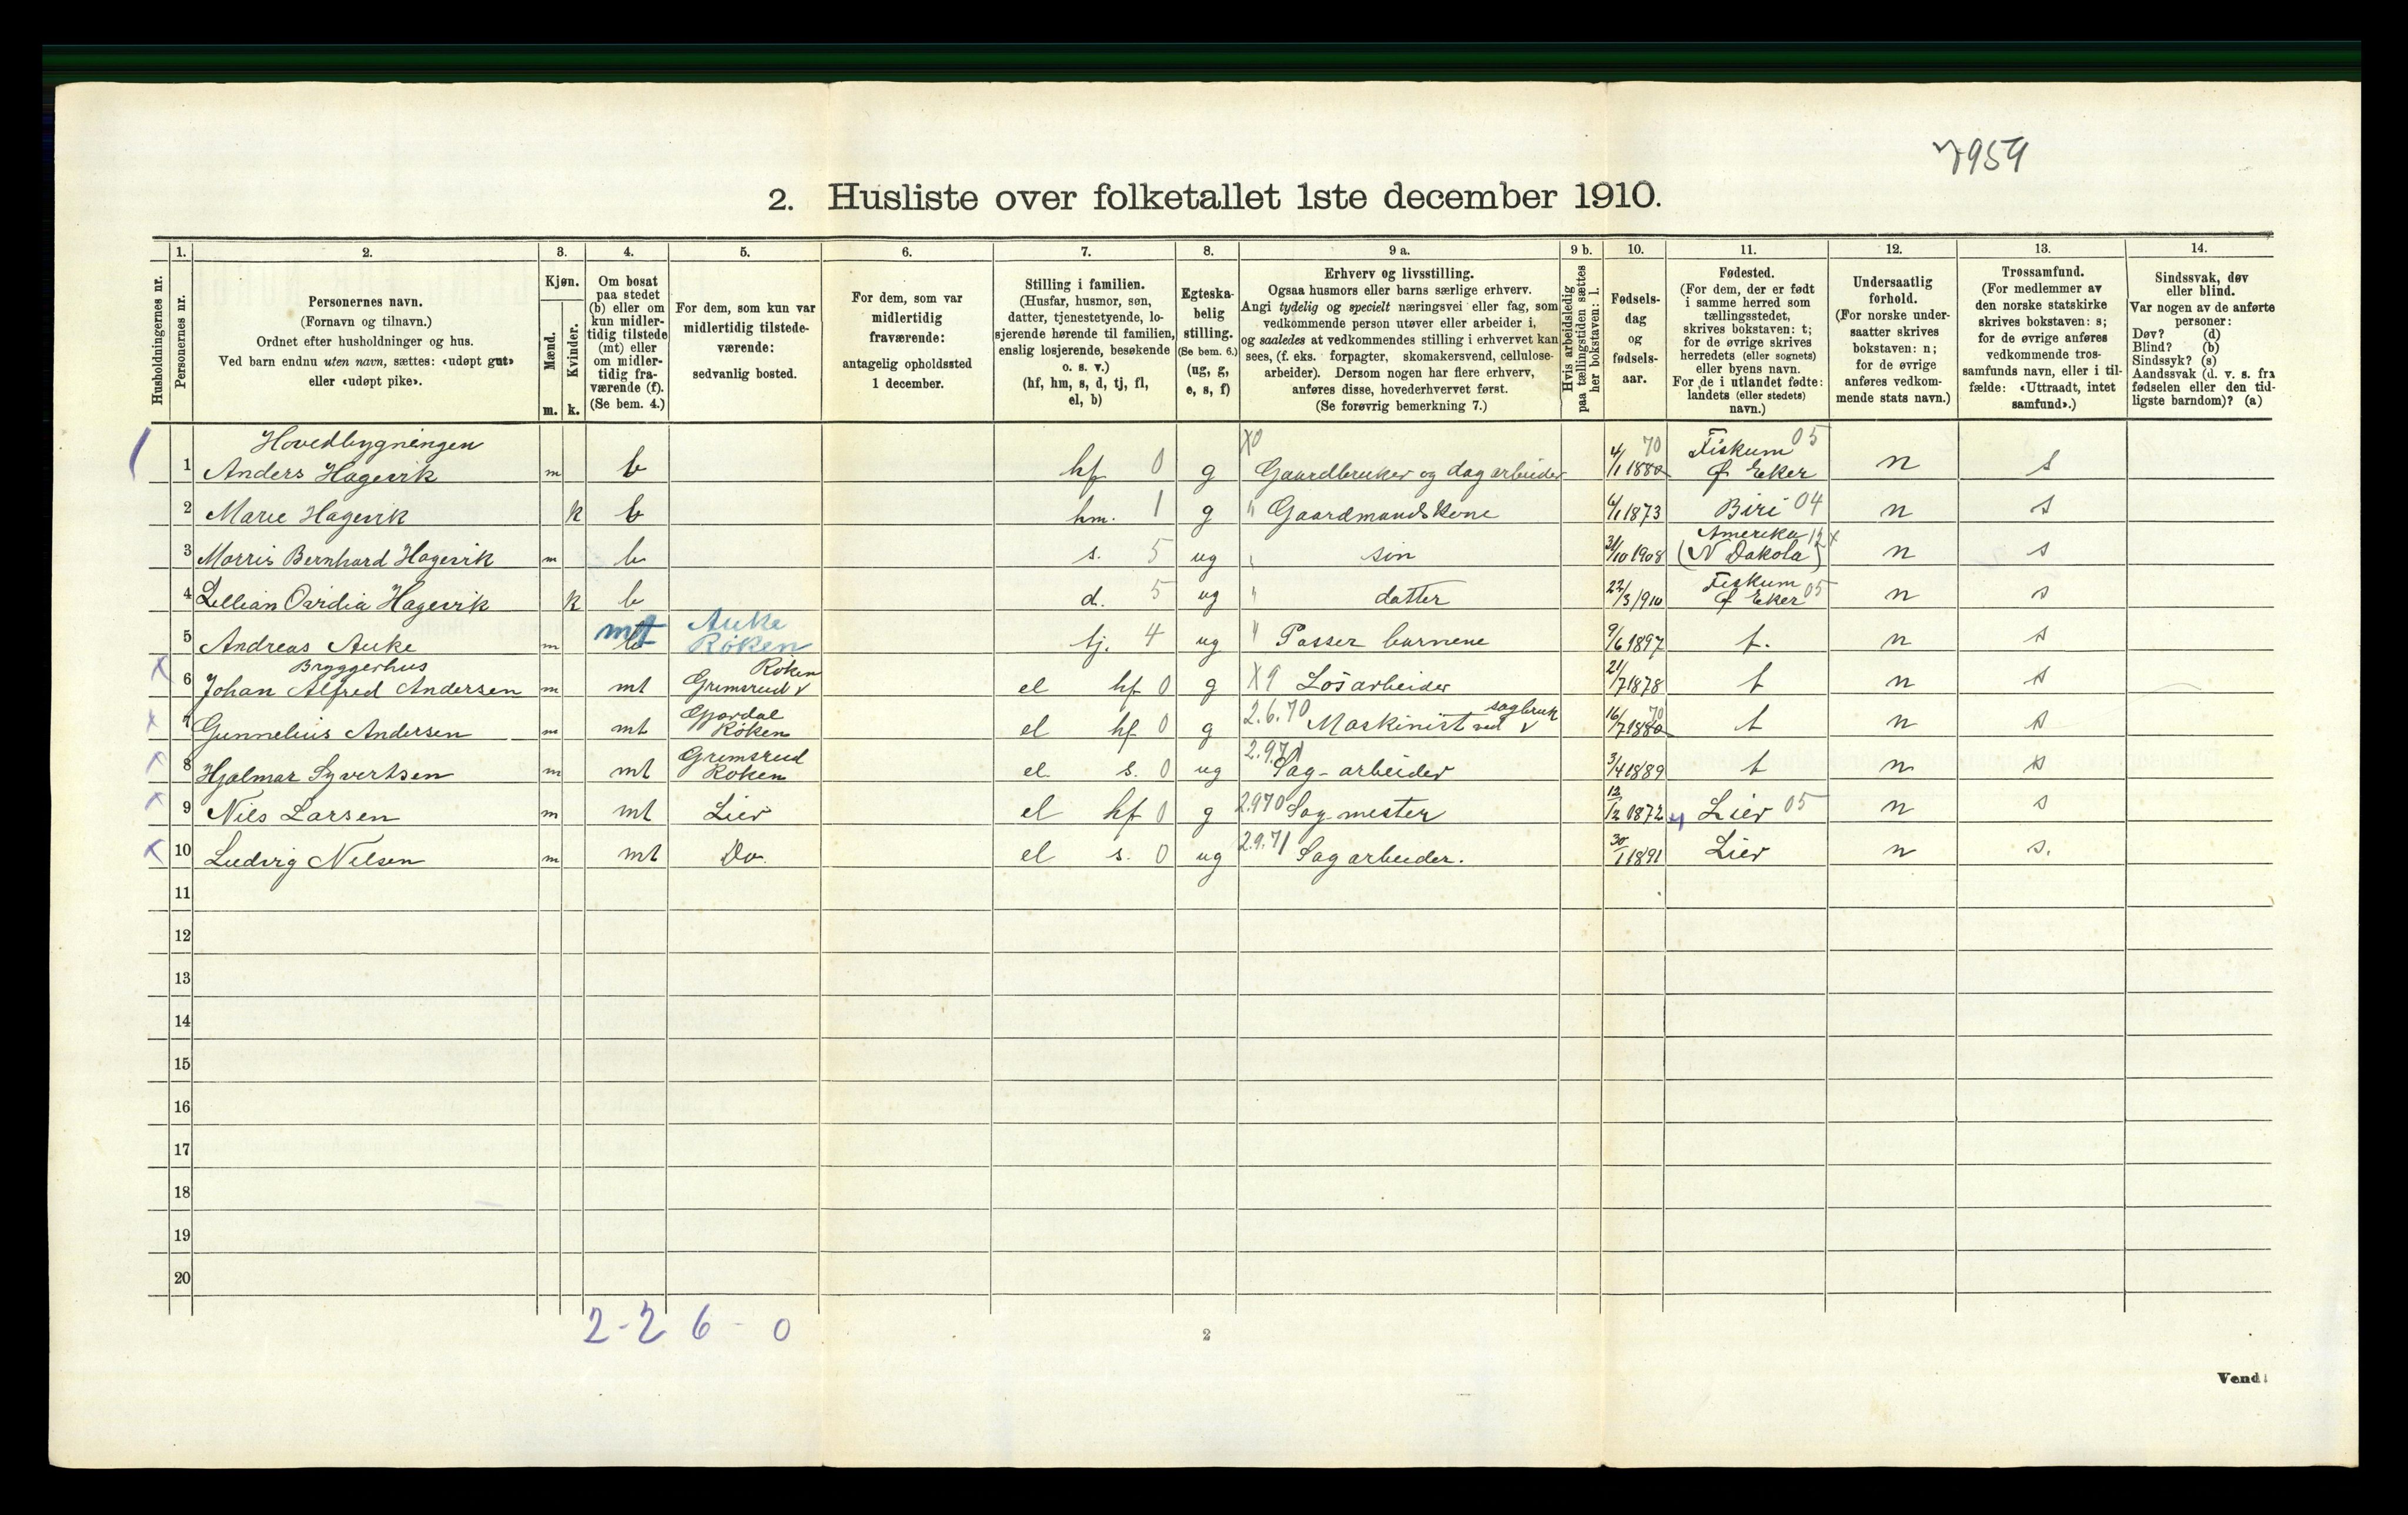 7959
2. Husliste over folketallet 1ste december 1910.
Husholdningernes nr.
1.
Personernes nr.
2.
Personernes navn.
(Fornavn og tilnavn.)
Ordnet efter husholdninger og hus.
Ved barn endnu uten navn, sættes: «udøpt gut»
eller «udøpt pike».
3.
Kjøn.
Mænd.
Kvinder.
m. k.
4.
Om bosat
paa stedet
(b) eller om
kun midler-
tidig tilstede
(mt) eller
om midler-
tidig fra-
værende (f).
(Se bem. 4.)
5.
For dem, som kun var
midlertidig tilstede-
værende:
sedvanlig bosted.
6.
For dem, som var
midlertidig
fraværende:
antagelig opholdssted
1 december.
7.
Stilling i familien.
(Husfar, husmor, søn,
datter, tjenestetyende, lo-
sjerende hørende til familien,
enslig losjerende, besøkende
o. s. v.)
(hf, hm, s, d, tj, fl,
el, b)
8.
Egteska-
belig
stilling.
(Se bem. 6.)
(ug, g,
e, s, f)
9 a.
Erhverv og livsstilling.
Ogsaa husmors eller barns særlige erhverv.
Angi tydelig og specielt næringsvei eller fag, som
vedkommende person utøver eller arbeider i,
og saaledes at vedkommendes stilling i erhvervet kan
sees, (f. eks. forpagter, skomakersvend, cellulose-
arbeider). Dersom nogen har flere erhverv,
anføres disse, hovederhvervet først.
(Se forøvrig bemerkning 7.)
9 b.
Hvis arbeidsledig
paa tællingstiden sættes
her bokstaven: l.
10.
Fødsels-
dag
og
fødsels-
aar.
11.
Fødested.
(For dem, der er født
i samme herred som
tællingsstedet,
skrives bokstaven: t;
for de øvrige skrives
herredets (eller sognets)
eller byens navn.
For de i utlandet fødte:
landets (eller stedets)
navn.)
12.
Undersaatlig
forhold.
(For norske under-
saatter skrives
bokstaven: n;
for de øvrige
anføres vedkom-
mende stats navn.)
13.
Trossamfund.
(For medlemmer av
den norske statskirke
skrives bokstaven: s;
for de øvrige anføres
vedkommende tros-
samfunds navn, eller i til-
fælde: «Uttraadt, intet
samfund».)
14.
Sindssvak, døv
eller blind.
Var nogen av de anførte
personer:
Døv? (d)
Blind? (b)
Sindssyk? (s)
Aandssvak (d. v. s. fra
fødselen eller den tid-
ligste barndom)? (a)
Hovedbygningen X0 70 Fiskum 05
1 Anders Hagevik m b hf 0 g Gaardbruker og dagarbeider 4/1 1880 Ø Eker n s
2 Marie Hagevik k b hm. 1 g " Gaardmandskone 6/1 1873 Biri 04 n s
Amerika 12 x
3 Morris Bernhard Hagevik m b s. 5 ug " søn 31/10 1908 (N Dakota) n s
Fiskum
4 Lillian Ovidia Hagevik k b d. 5 ug " datter 22/3 1910 Ø Eker 05 n s
mt Auke
5 Andreas Auke m b Røken tj. 4 ug " Passer barnene 9/6 1897 t. n s
Bryggerhus Røken
6 Johan Alfred Andersen m mt Grimsrud v el hf 0 g X9 Løsarbeider 21/7 1878 t n s
Gjerdal sagbruk 70
7 Gunnelius Andersen m mt Røken el hf 0 g 2.6.70 Maskinist ved v 16/7 1880 t n s
Grimsrud 2.971
8 Hjalmar Syvertsen m mt Røken el. s. 0 ug Sag-arbeider 3/4 1889 t n s
9 Nils Larsen m mt Lier el hf 0 g 2.970 Sagmester 12/12 1872 Lier 05 n s
10 Ludvig Nilsen m mt Do. el s. 0 ug 2.9.71 Sagarbeider. 30/1 1891 Lier n s.
11
12
13
14
15
16
17
18
19
20
2-2 6-0
2
Vend!